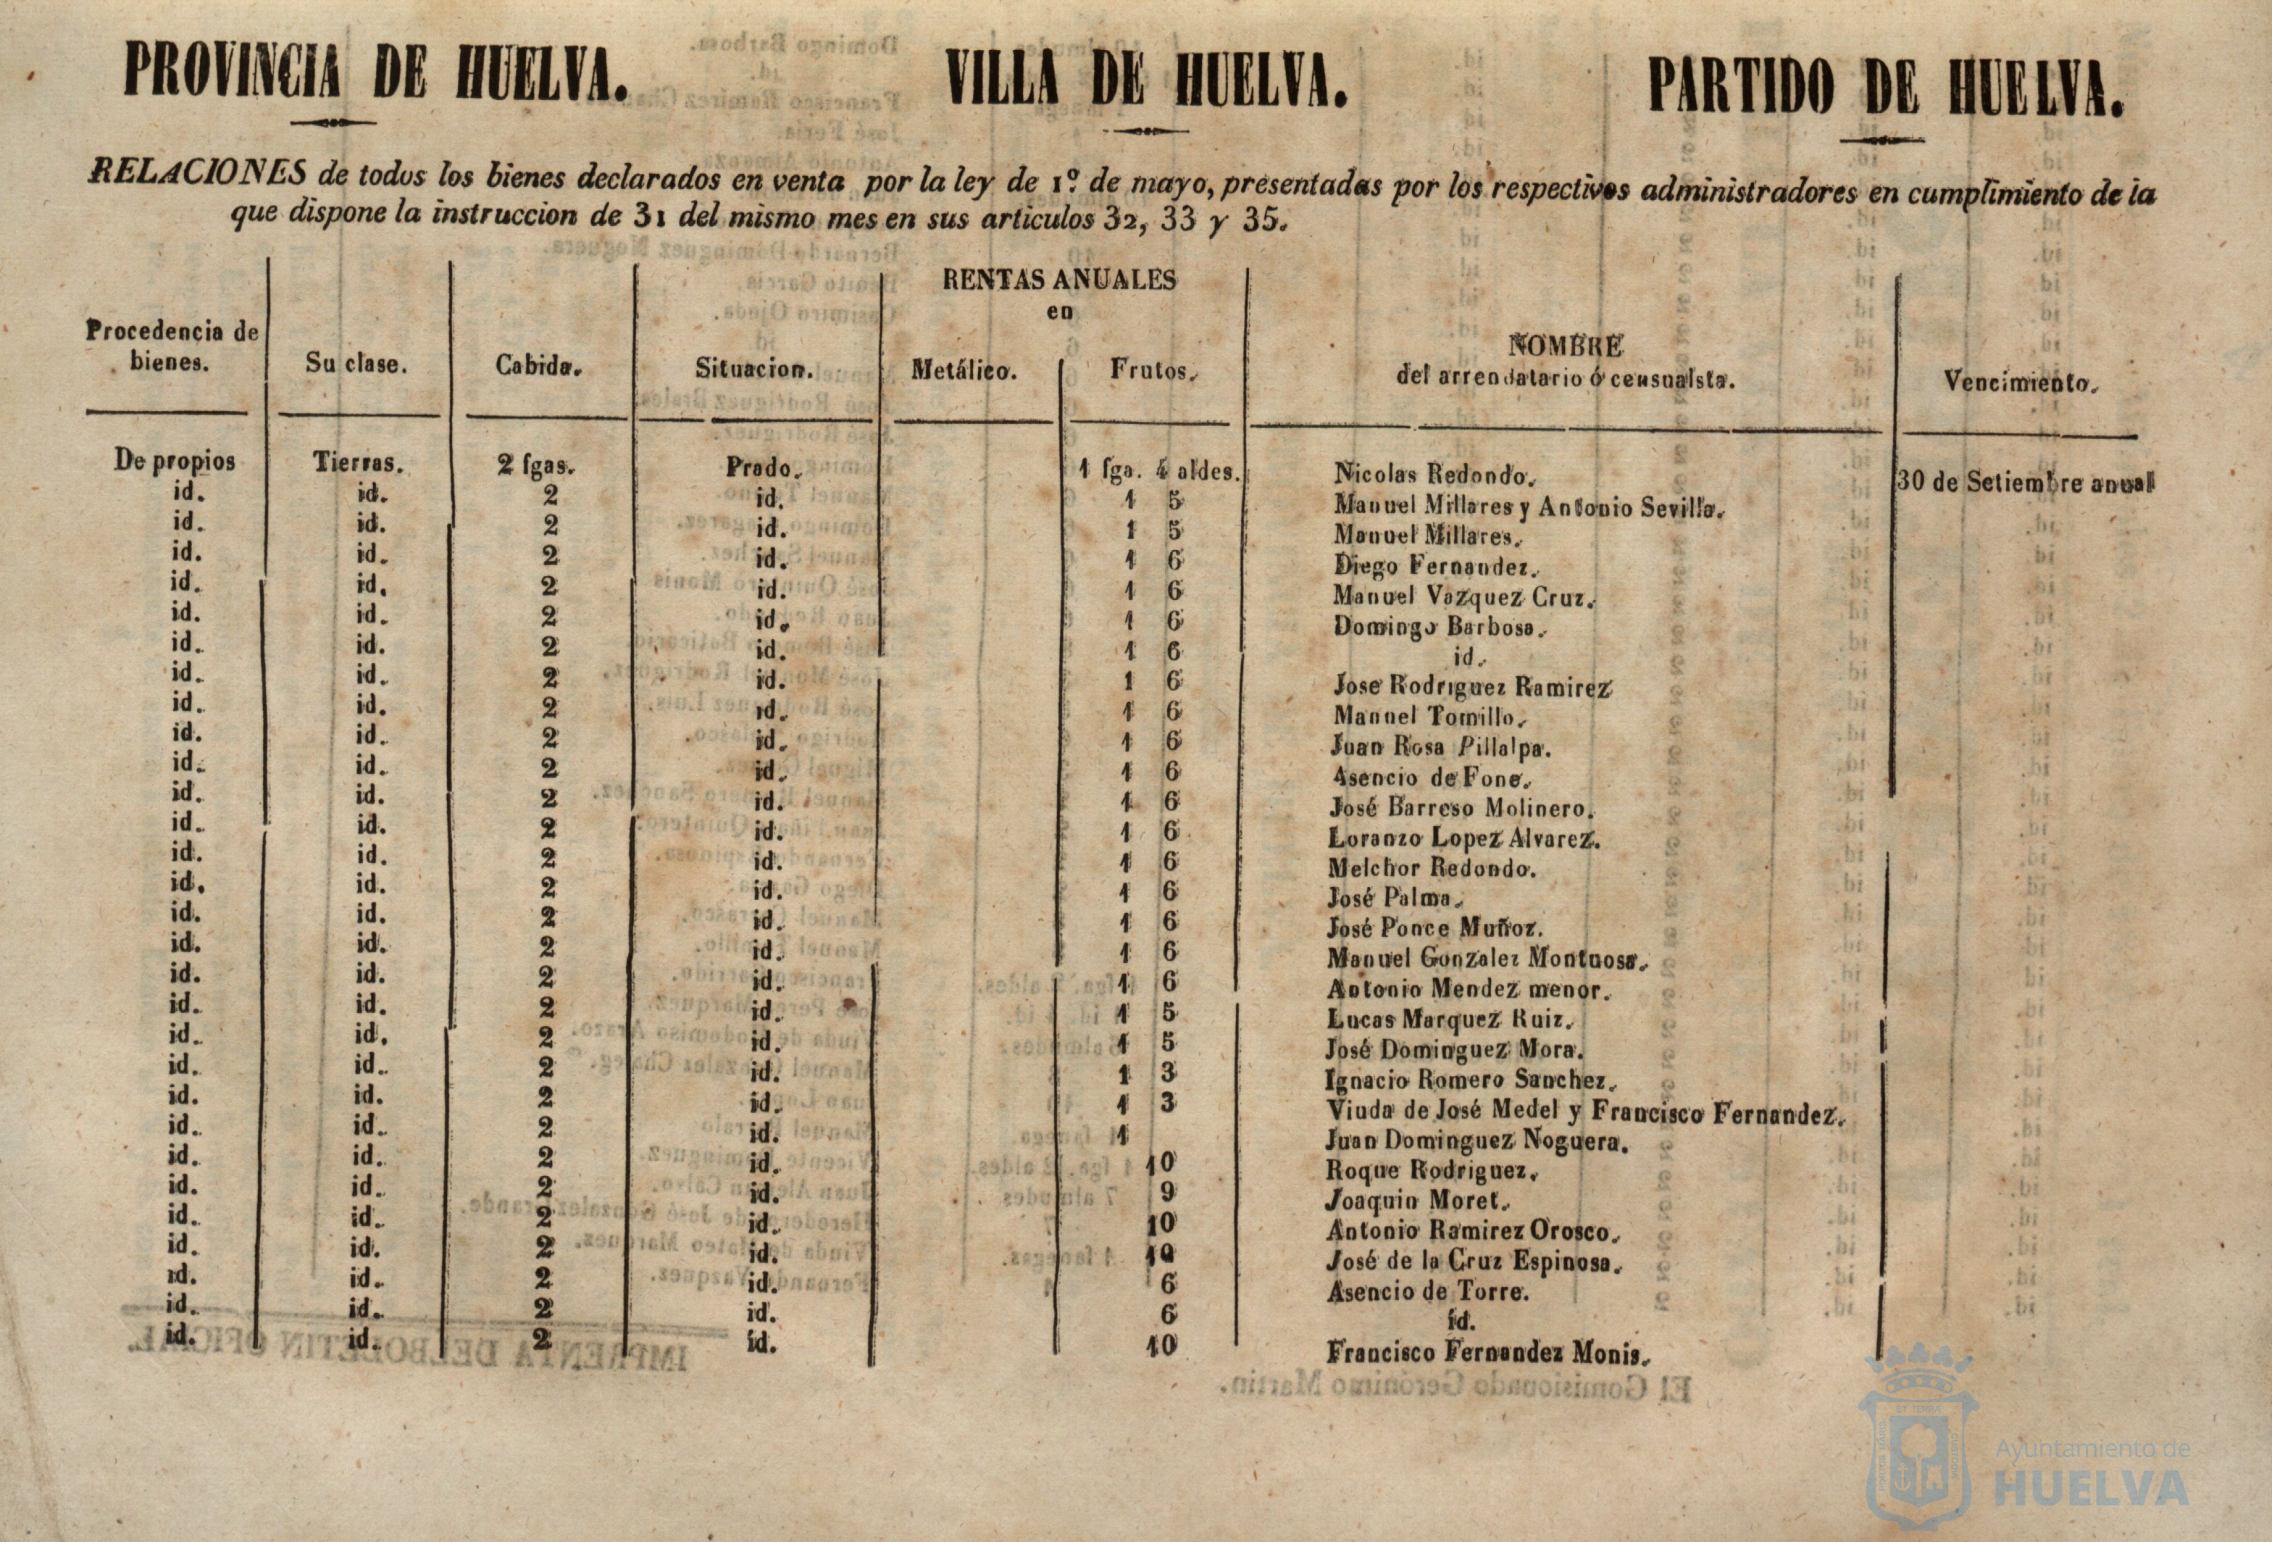 PROVINCIA DE HUELVA. VILLA DE HUELVA. PARTIDO DE HUELVA.
RELACIONES de todos los bienes declarados en venta por la ley de 1º. de mayo, presentadas por los respectivos administradores en cumplimiento de la
que dispone la instruccion de 31 del mismo mes en sus articulos 32, 33 y 35.
RENTAS ANUALES
en
Procedencia de bienes. Su clase. Cabida. Situacion. Metálico. Frutos. NOMBRE del arrendatario ó censualsta. Vencimiento.
De propios Tierras. 2 fgas. Prado. 1 fga. 4 aldes. Nicolas Redondo. 30 de Setiembre anual
id. id. 2 id. 1 5 Manuel Millares y Antonio Sevilla.
id. id. 2 id. 1 5 Manuel Millares.
id. id. 2 id. 1 6 Diego Fernandez.
id. id. 2 id. 1 6 Manuel Vazquez Cruz.
id. id. 2 id. 1 6 Domingo Barbosa.
id. id. 2 id. 1 6 id.
id. id. 2 id. 1 6 Jose Rodriguez Ramirez
id. id. 2 id. 1 6 Manuel Tomillo.
id. id. 2 id. 1 6 Juan Rosa Pillalpa.
id. id. 2 id. 1 6 Asencio de Fone.
id. id. 2 id. 1 6 José Barreso Molinero.
id. id. 2 id. 1 6 Loranzo Lopez Alvarez.
id. id. 2 id. 1 6 Melchor Redondo.
id. id. 2 id. 1 6 José Palma.
id. id. 2 id. 1 6 José Ponce Muñoz.
id. id. 2 id. 1 6 Manuel Gonzalez Montuosa.
id. id. 2 id. 1 6 Antonio Mendez menor.
id. id. 2 id. 1 5 Lucas Marquez Ruiz.
id. id. 2 id. 1 5 José Dominguez Mora.
id. id. 2 id. 1 3 Ignacio Romero Sanchez.
id. id. 2 id. 1 3 Viuda de José Medel y Francisco Fernandez.
id. id. 2 id. 1 Juan Dominguez Noguera.
id. id. 2 id. 10 Roque Rodriguez.
id. id. 2 id. 9 Joaquin Moret.
id. id. 2 id. 10 Antonio Ramirez Orosco.
id. id. 2 id. 10 José de la Cruz Espinosa.
id. id. 2 id. 6 Asencio de Torre.
id. id. 2 id. 6 id.
id. id. 2 id. 10 Francisco Fernandez Monis.
Ayuntamiento de
HUELVA